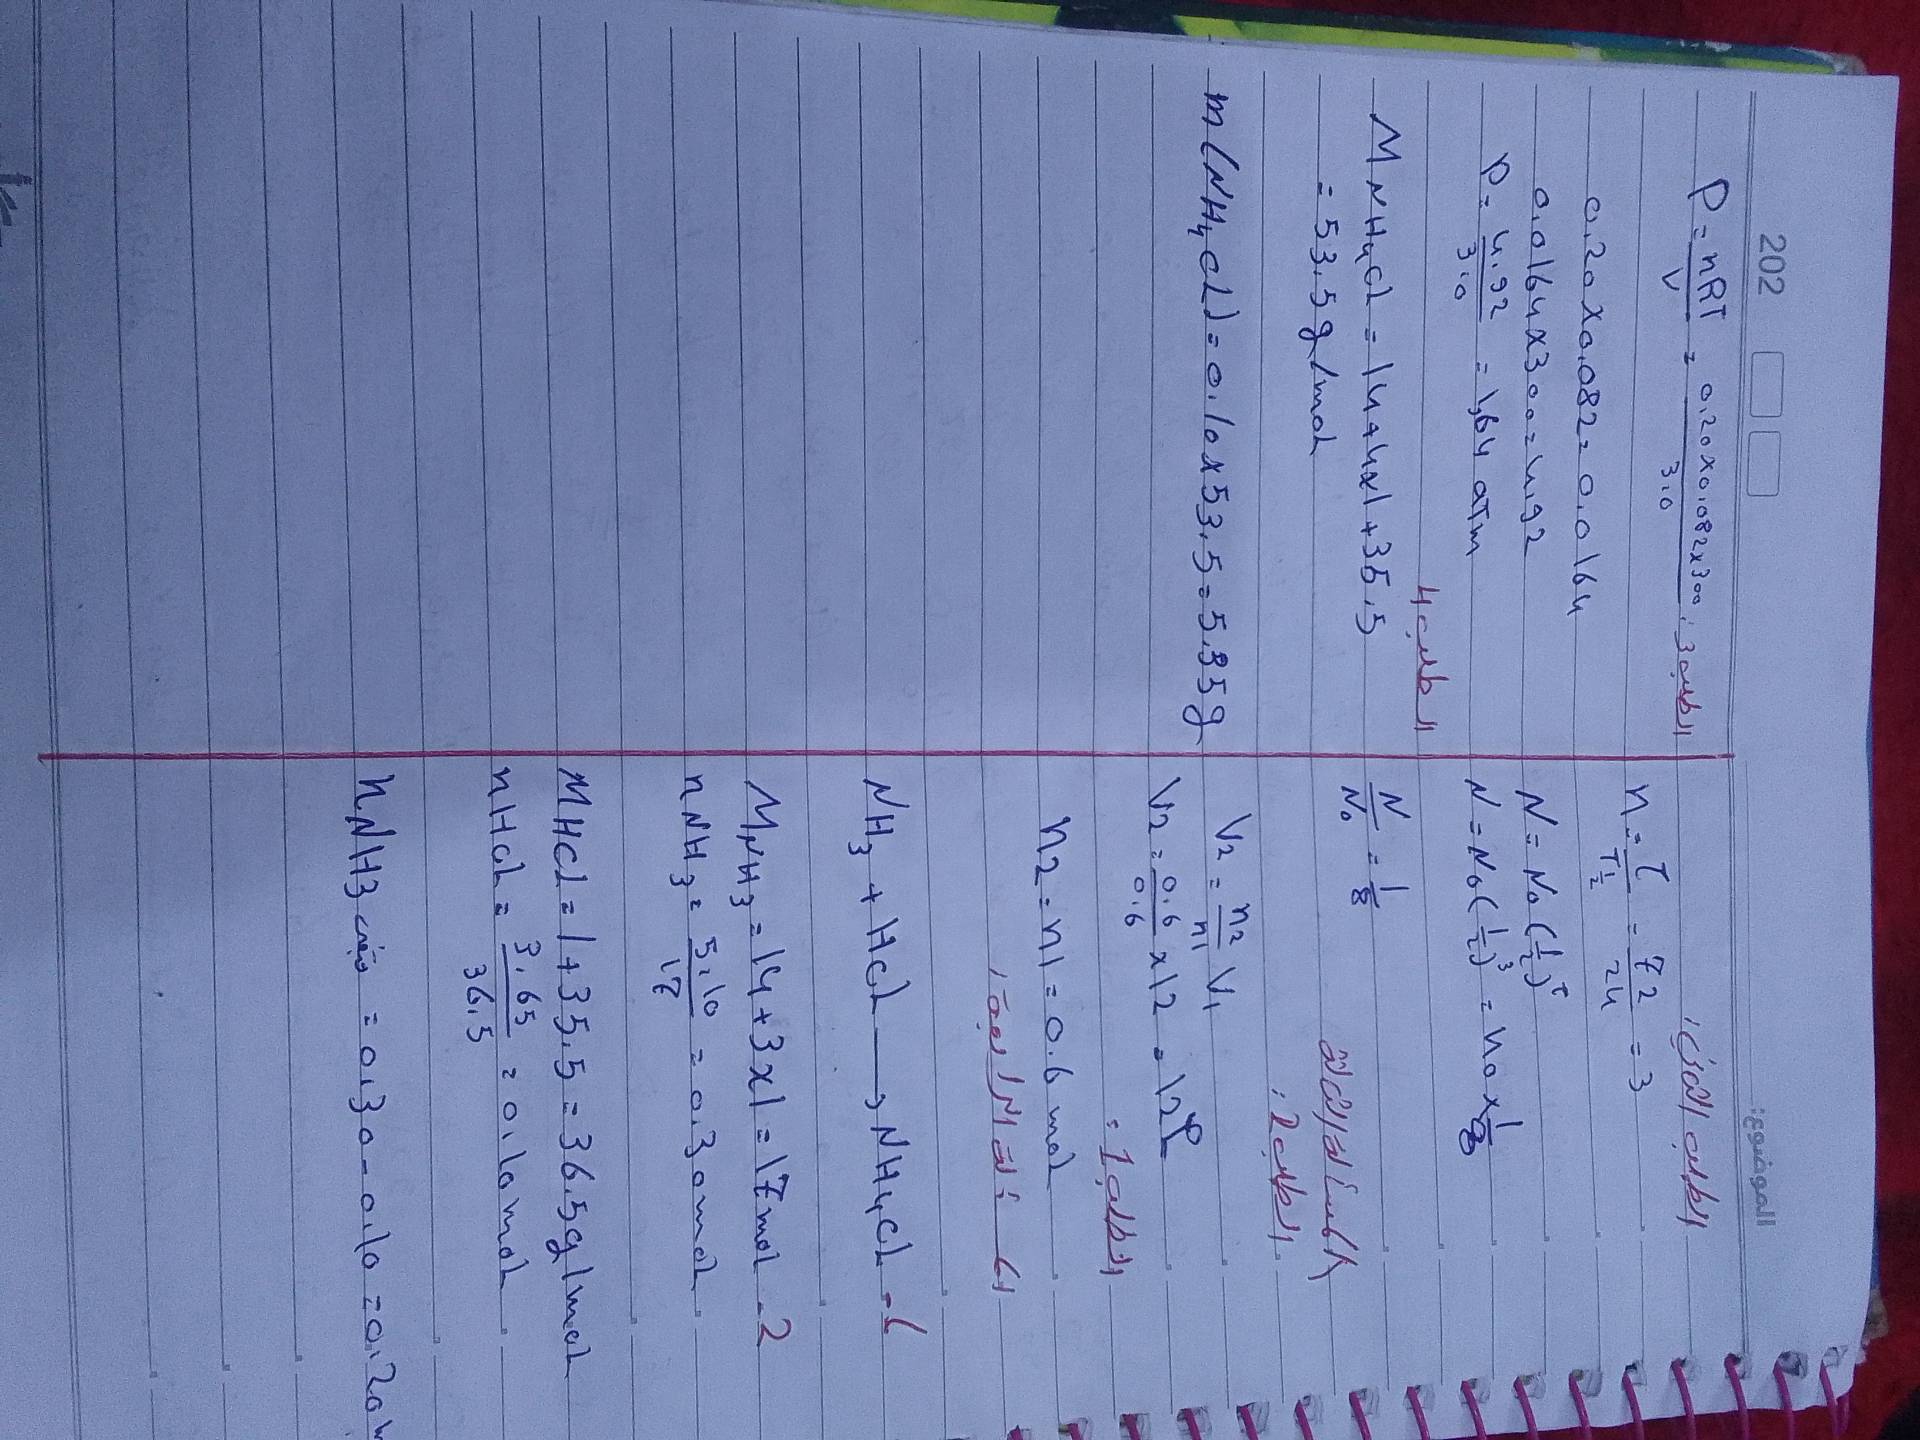 202
الموضوع:
الطلب الثاني:
n = t / T½ = 72 / 24 = 3
N = N₀ (½)ᵗ
N = N₀ (½)³ = N₀ x 1/8
N / N₀ = 1/8
الطلب 2:
V2 = n2 / n1 V1
V2 = 0.6 / 0.6 x 12 = 12 l
الطلب 1:
n2 = n1 = 0.6 mol
NH3 + HCl → NH4Cl - 1
M NH3 = 14 + 3x1 = 17 mol - 2
n NH3 = 5.10 / 17 = 0.30 mol
M HCl = 1 + 35.5 = 36.5 g/mol
n HCl = 3.65 / 36.5 = 0.10 mol
n NH3 = 0.30 - 0.10 = 0.20
الطلب 3:
P = nRT / V = 0.20 x 0.082 x 300 / 3.0
0.20 x 0.082 = 0.0164
0.0164 x 300 = 4.92
P = 4.92 / 3.0 = 1,64 atm
الطلب 4
M NH4Cl = 14 + 4x1 + 35.5
= 53.5 g/mol
m (NH4Cl) = 0.10 x 53.5 = 5.35 g